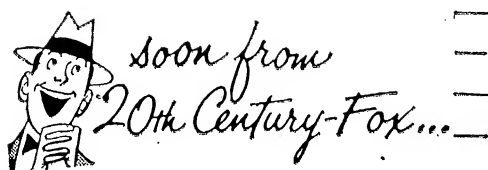 soon from
20th Century-Fox...